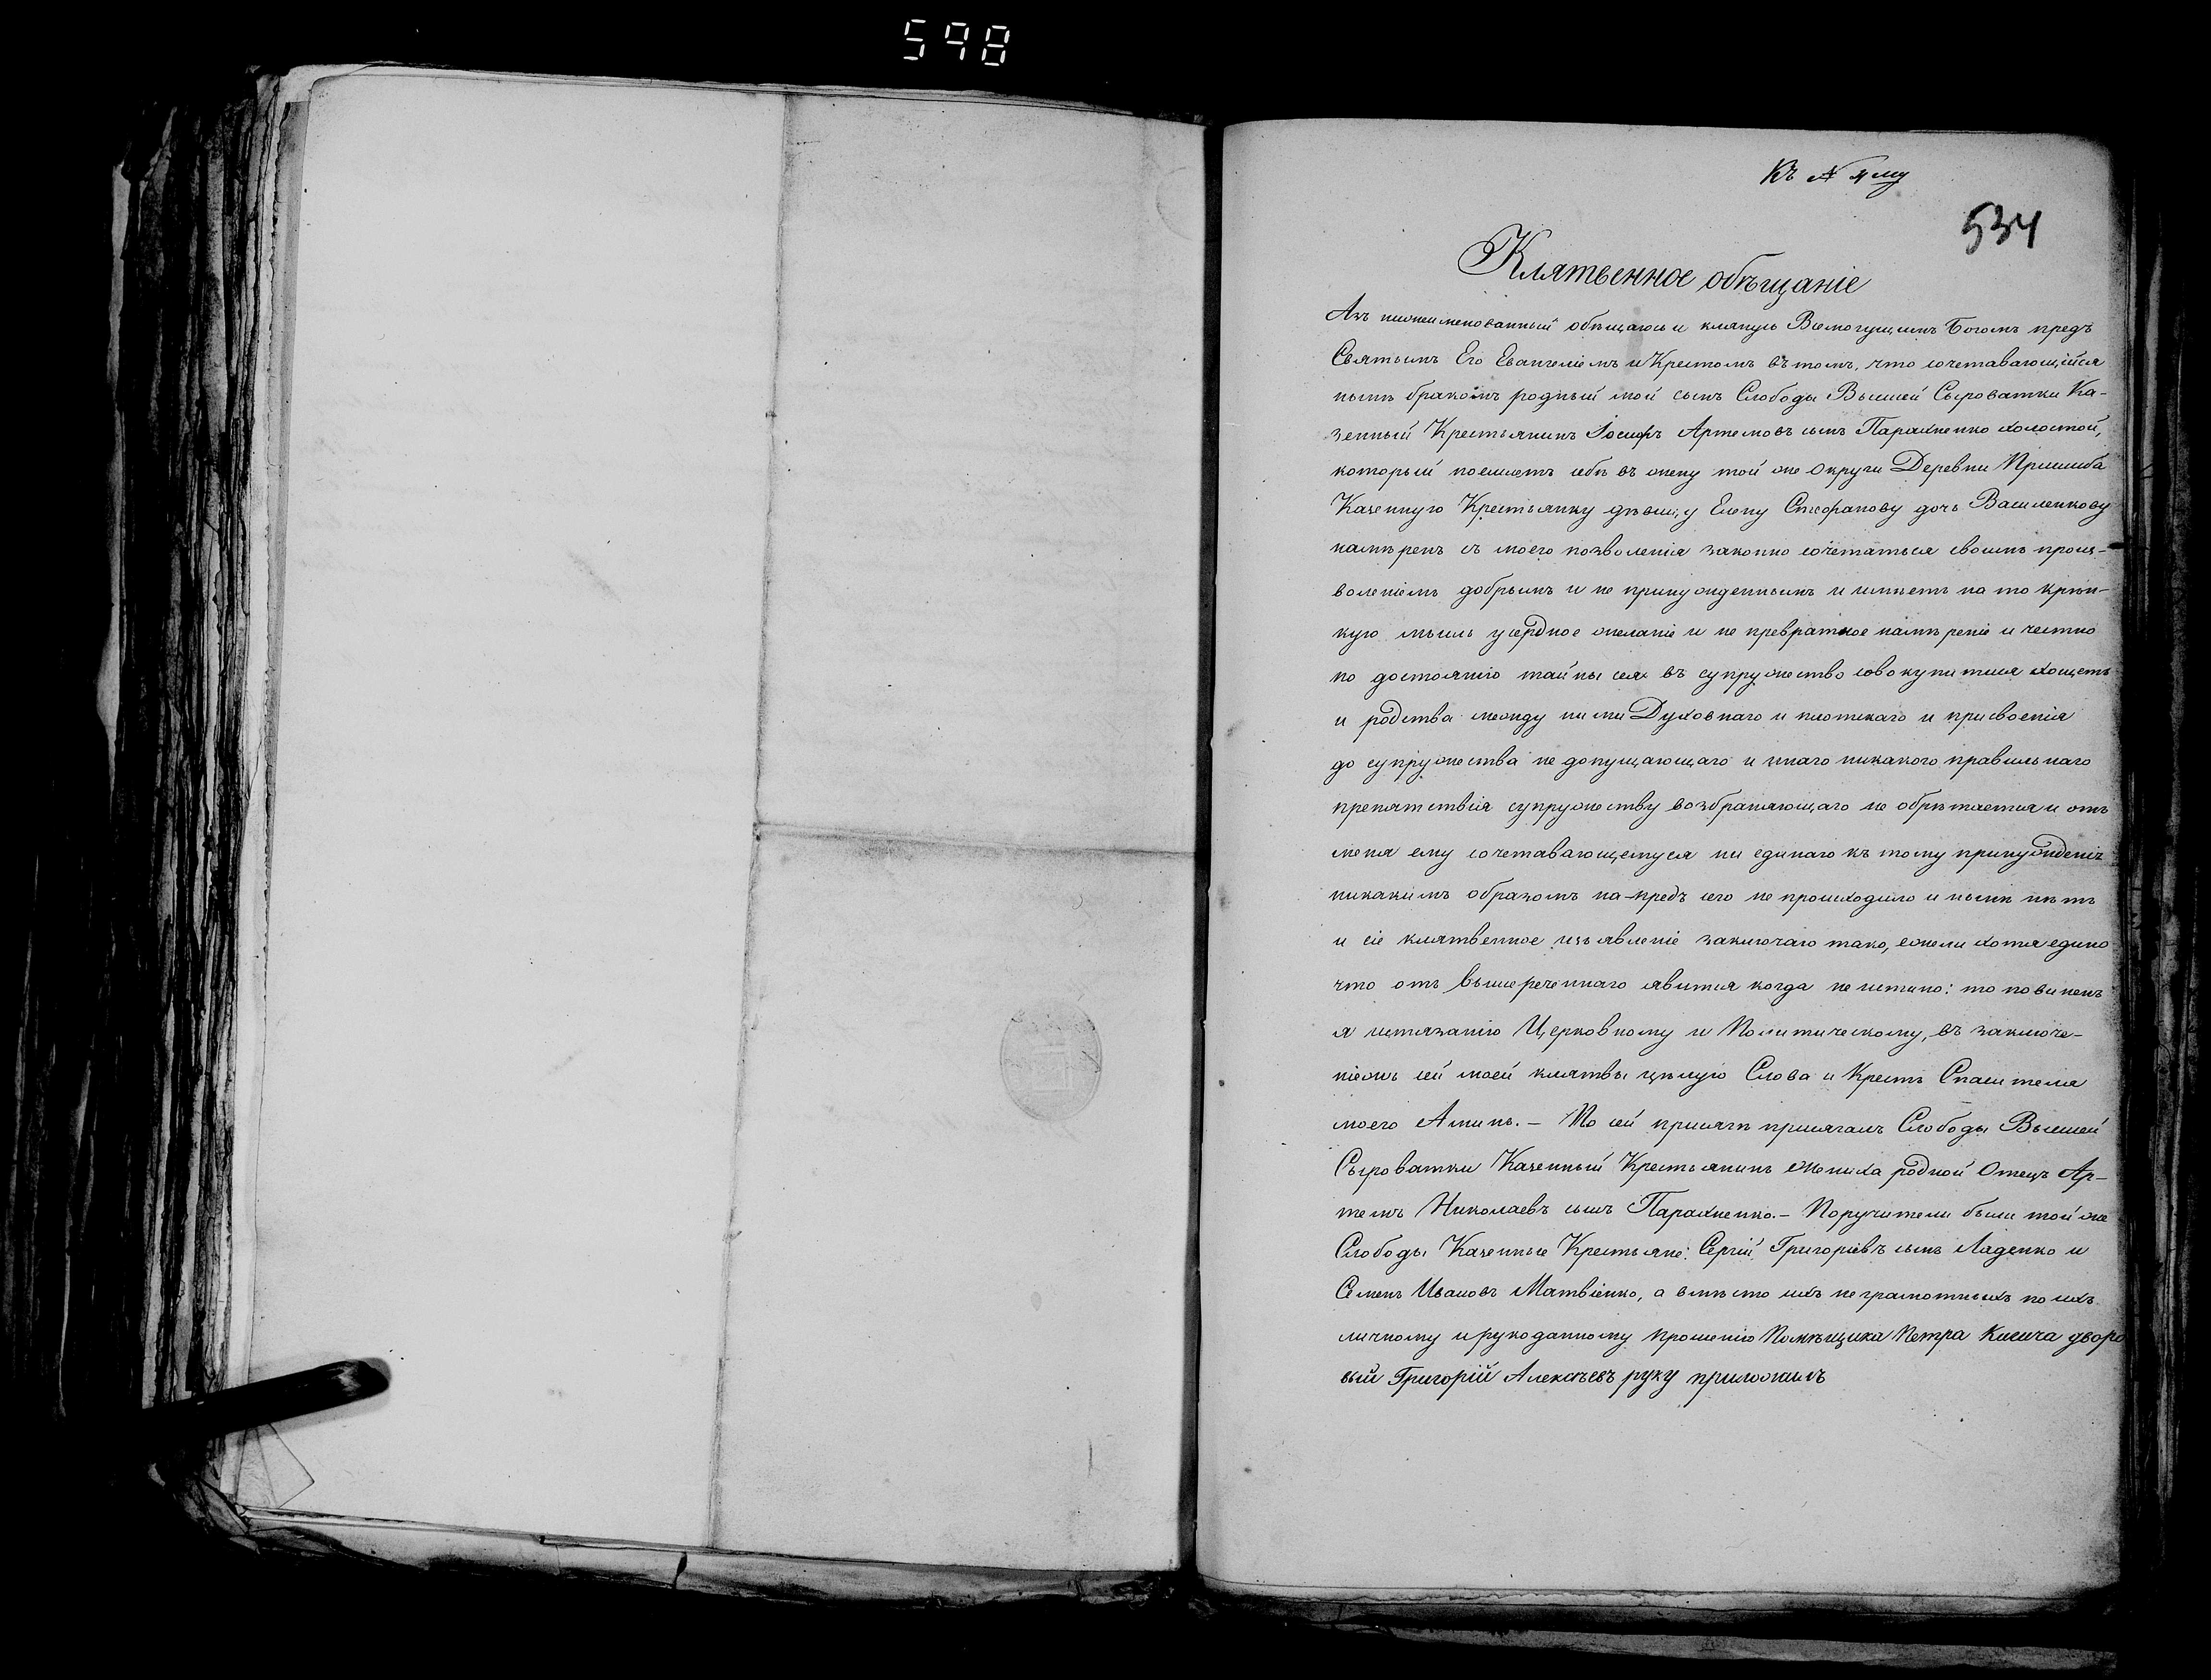 598
Къ № 4му
534
Клятвенное обѣщаніе
Азъ нижеименованный обѣщаюсь и клянусь Всемогущимъ Богомъ предъ
Святымъ Его Евангеліемъ и Крестомъ въ томъ, что сочетавающійся
нынѣ бракомъ родный мой сынъ Слободы Высшей Сыроватки Ка-
зенный Крестьянинъ Іосифъ Артемовъ сынъ Парахненко холостой,
который поемлетъ себѣ въ жену той же округи Деревни Пришиба
Казенную Крестьянку дѣвицу Елену Стефанову дочь Василенкову
намѣренъ съ моего позволенія законно сочетаться своимъ произ-
воленіемъ добрымъ и не принужденнымъ и имѣетъ на то крѣп-
кую мысль усердное желаніе и не превратное намѣреніе и честно
по достоянію тайны сея въ супружество совокупитися хощетъ
и родства между ними Духовнаго и плотскаго и присвоенія
до супружества не допущающаго и инаго никакого правильнаго
препятствія супружеству возбраняющаго не обрѣтается и отъ
меня ему сочетавающемуся ни единаго къ тому принужденія
никакимъ образомъ на-предъ сего не происходило и нынѣ нѣтъ
и сіе клятвенное изъявленіе заключаю тако, ежели хотя едино
что отъ вышереченнаго явится когда не истино: то повиненъ
я истязанію Церковному и Политическому, въ заключе-
ніемъ сей моей клятвы цѣлую Слова и Крестъ Спасителя
моего Аминь. – По сей присягѣ присягалъ Слободы Высшей
Сыроватки Казенный Крестьянинъ жениха родной Отецъ Ар-
темъ Николаевъ сынъ Парахненко. – Поручители были той же
Слободы Казенные Крестьяне: Сергій Григоріевъ сынъ Ладенко и
Семенъ Ивановъ Матвіенко, а вмѣсто ихъ неграмотныхъ по ихъ
личному и рукоданному прошенію Помѣщика Петра Кисича дворо
вый Григорій Алексѣевъ руку приложилъ